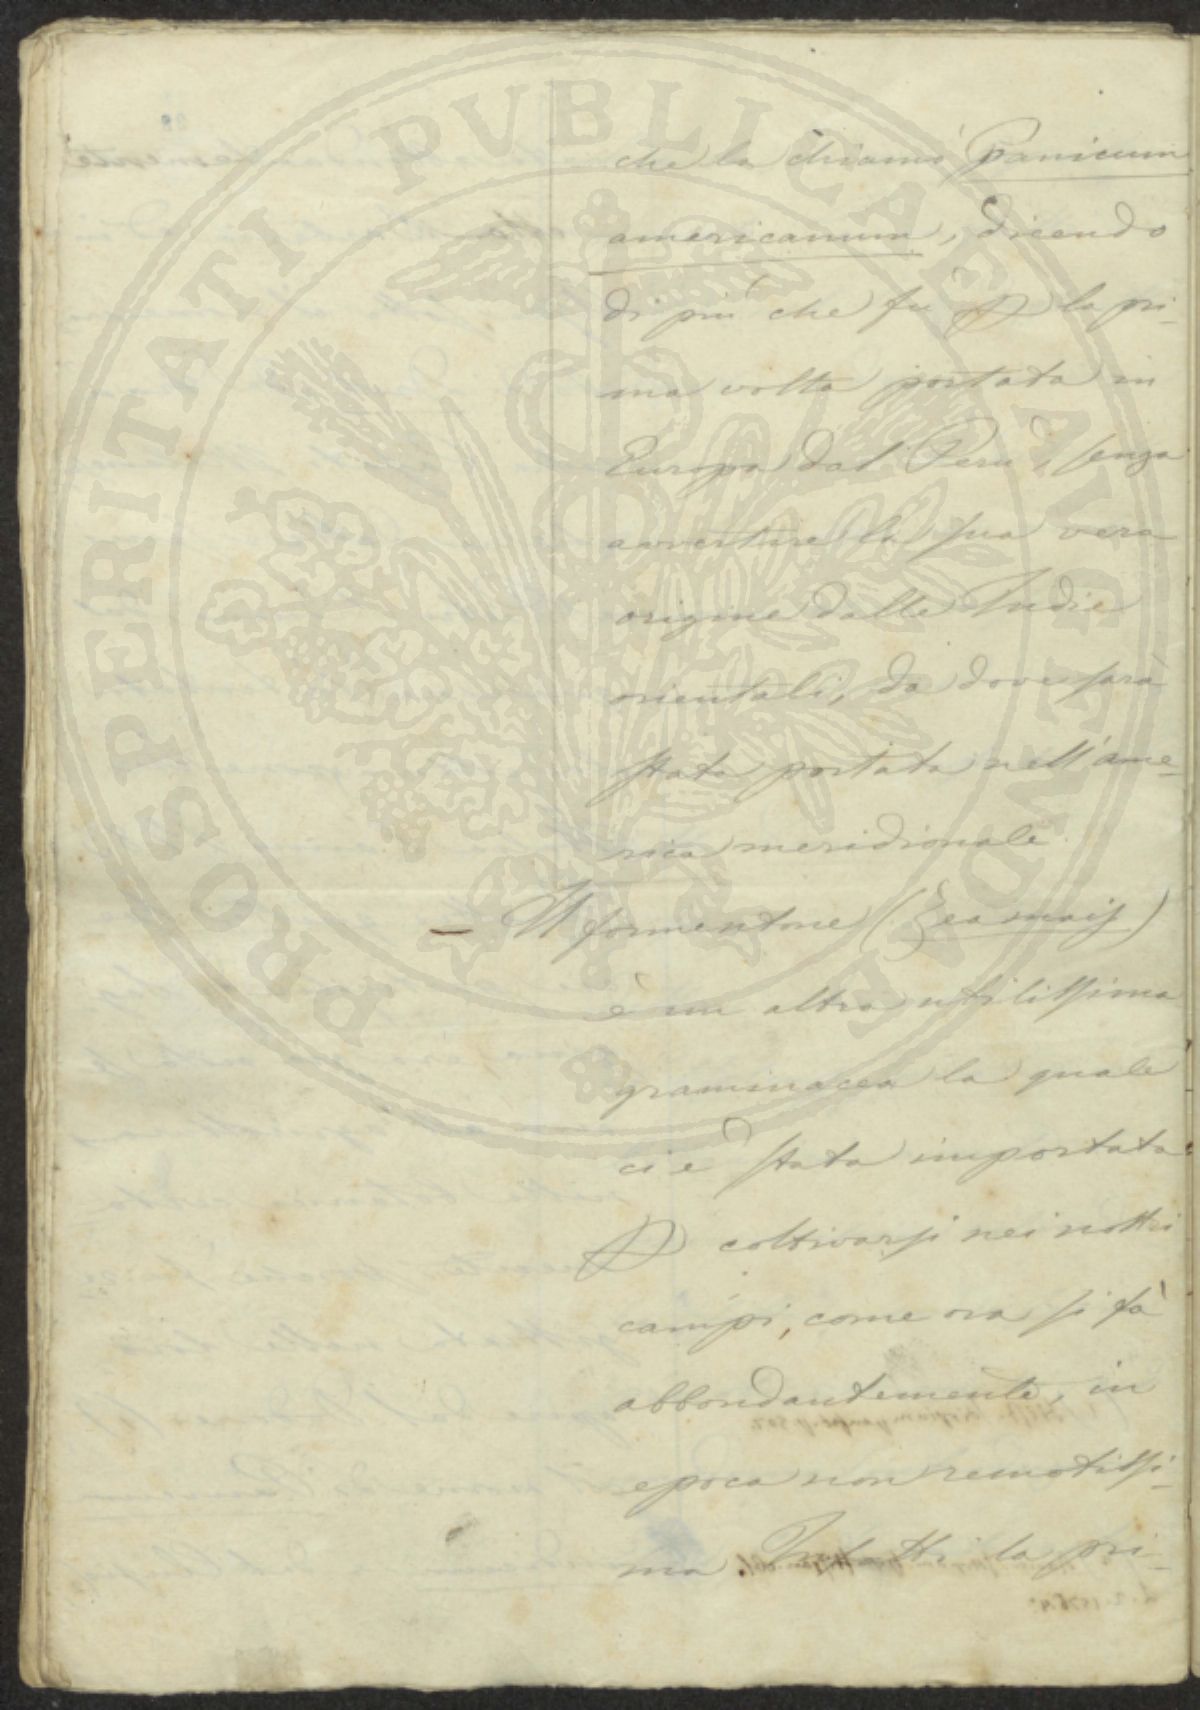 PROSPERITATI PUBLICAE AUGENDAE
che la chiamò Panicum
americanum, dicendo
di più che fu la pri-
ma volta portata in
Europa dal Perù, senza
avvertire la sua vera
origine dalle Indie
orientali, da dove sarà
stata portata nell'ame-
rica meridionale.
— Il formentone (Zea mais)
è un altra utilissima
graminacea la quale
ci è stata importata
coltivarsi nei nostri
campi, come ora si fà
abbondantemente, in
epoca non remotissi-
ma. Infatti la pri-